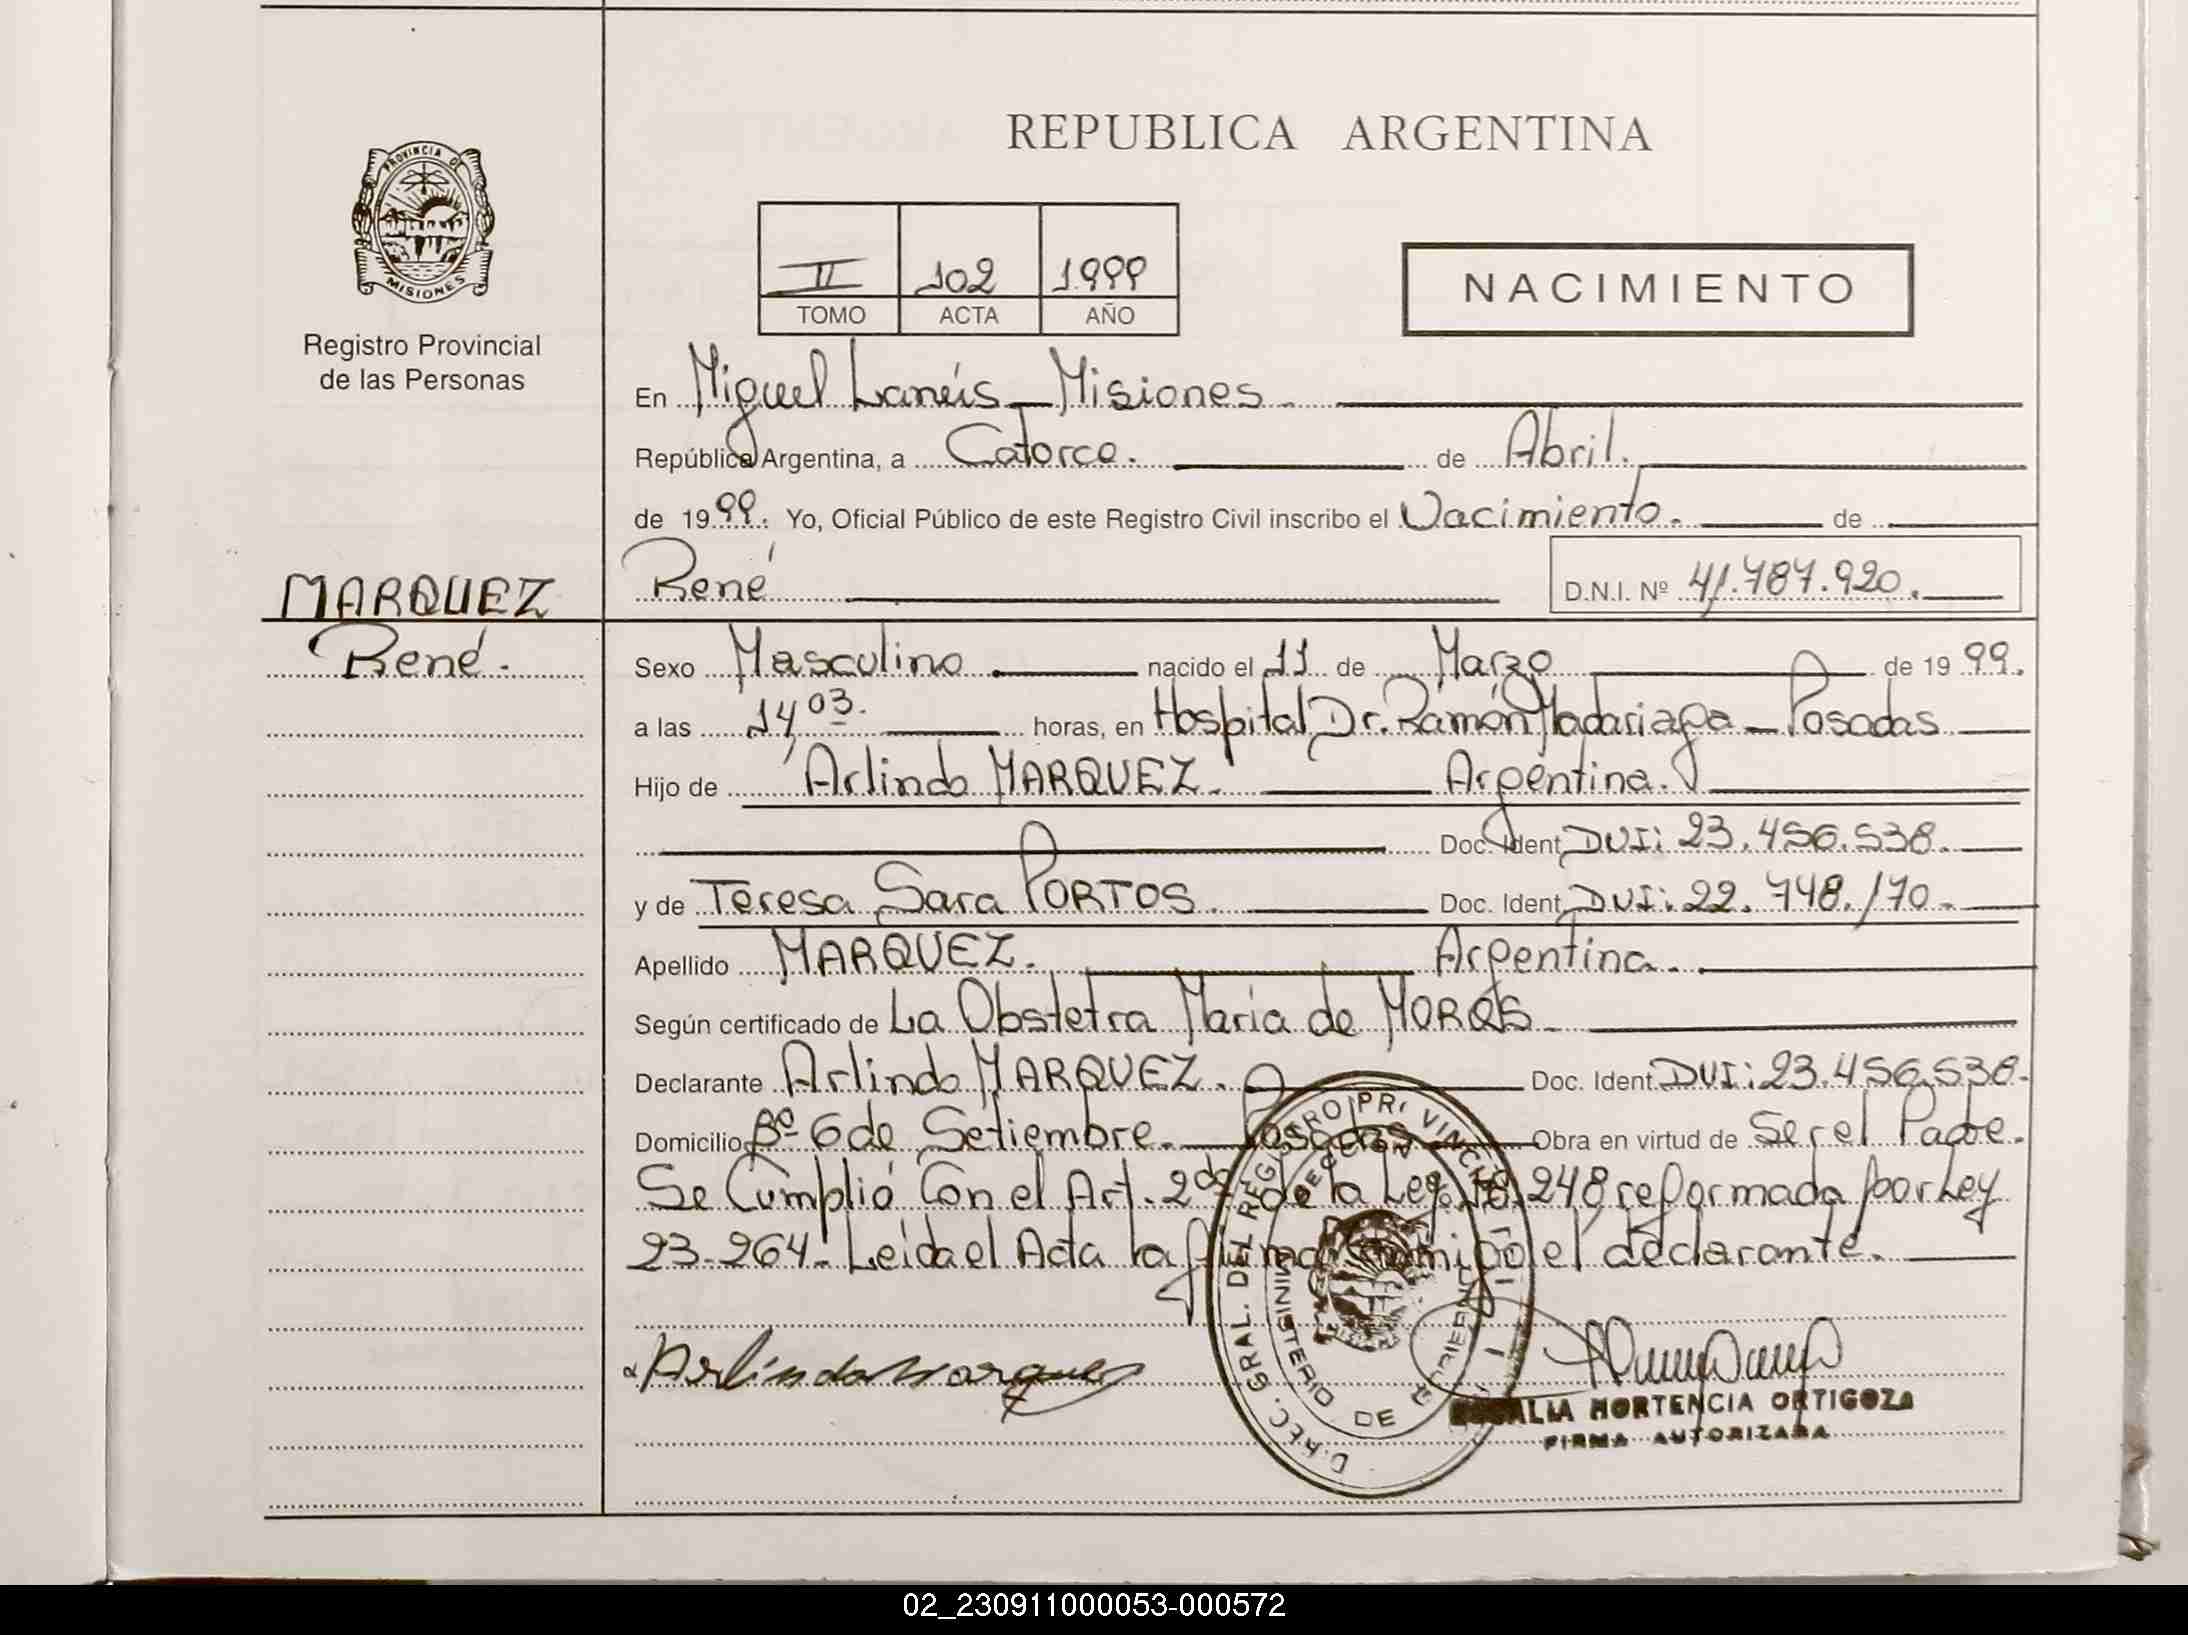 REPUBLICA ARGENTINA
PROVINCIA DE
MISIONES
Registro Provincial
de las Personas
II 102 1999
TOMO ACTA AÑO
NACIMIENTO
En Miguel Lanús - Misiones.
República Argentina, a Catorce. de Abril.
de 1999. Yo, Oficial Público de este Registro Civil inscribo el Nacimiento. de
MARQUEZ
René
D.N.I. Nº 41.787.920.
René.
Sexo Masculino. nacido el 11 de Marzo de 1999.
a las 14,03. horas, en Hospital Dr. Ramón Madariaga - Posadas
Hijo de Arlindo MARQUEZ. Argentina.
Doc. Ident. DNI: 23.456.538.
y de Teresa Sara PORTOS. Doc. Ident. DNI: 22.748.170.
Apellido MARQUEZ. Argentina.
Según certificado de La Obstetra María de
Declarante Arlindo MARQUEZ. Doc. Ident. DNI: 23.456.538.
Domicilio Bº 6 de Setiembre. Posadas Obra en virtud de Ser el Padre.
Se Cumplió Con el Art. 2do de la Ley 18.248 reformada por Ley
23.264. Leida el Acta la firma Conmigo el declarante.
Arlindo Marquez
DIREC. GRAL. DEL REGISTRO PROVINCIAL
MINISTERIO DE GOBIERNO
HORTENCIA ORTIGOZA
FIRMA AUTORIZADA
02_230911000053-000572